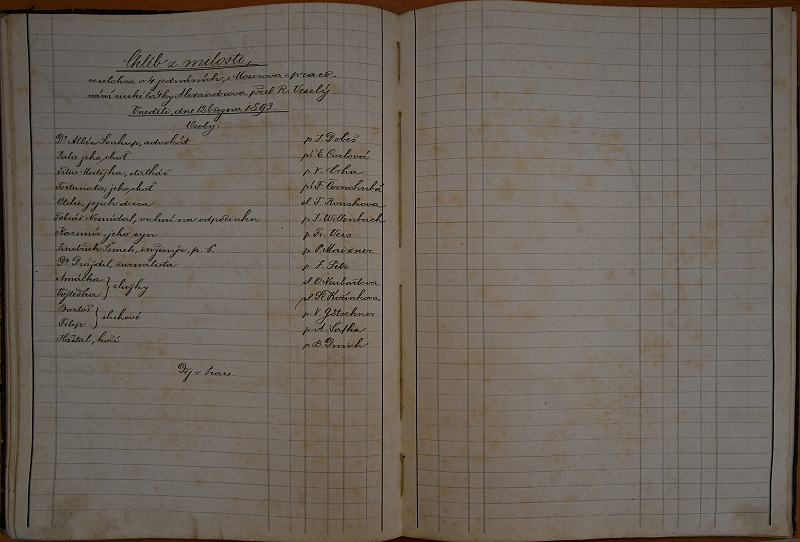 Chléb z milosti,
veselohra o 4 jednáních, z Moserova zpraco-
vání ruské látky Alexandrova přel. R. Veselý
V neděli, dne 12 března 1893.
Osoby:
Dr Albín Soukup, advokát p. J. Dobeš
Julie jeho choť pí E. Corlová
Titus Matějka, statkář p. V. Vrha
Fortunata, jeho choť pí F. Černohubá
Otilie, jejich dcera sl. T. Rouskova
Tobiáš Nemídal, vrchní na odpočinku p. J. Willenbach
Kazimír jeho syn p. Fr. Veis
Jindřich Šimek, inženýr, p. P. Maixner
Dr Dráždil, žurnalista p. L. Petr
Amálka sl. O. Neubartova
Vojtěška } služky sl. Kočínkova
Bartoš p. V. Götschner
Filip } sluhové p. A. Šafka
Haštal, kočí p. B. Dmich
Děj v Praze.